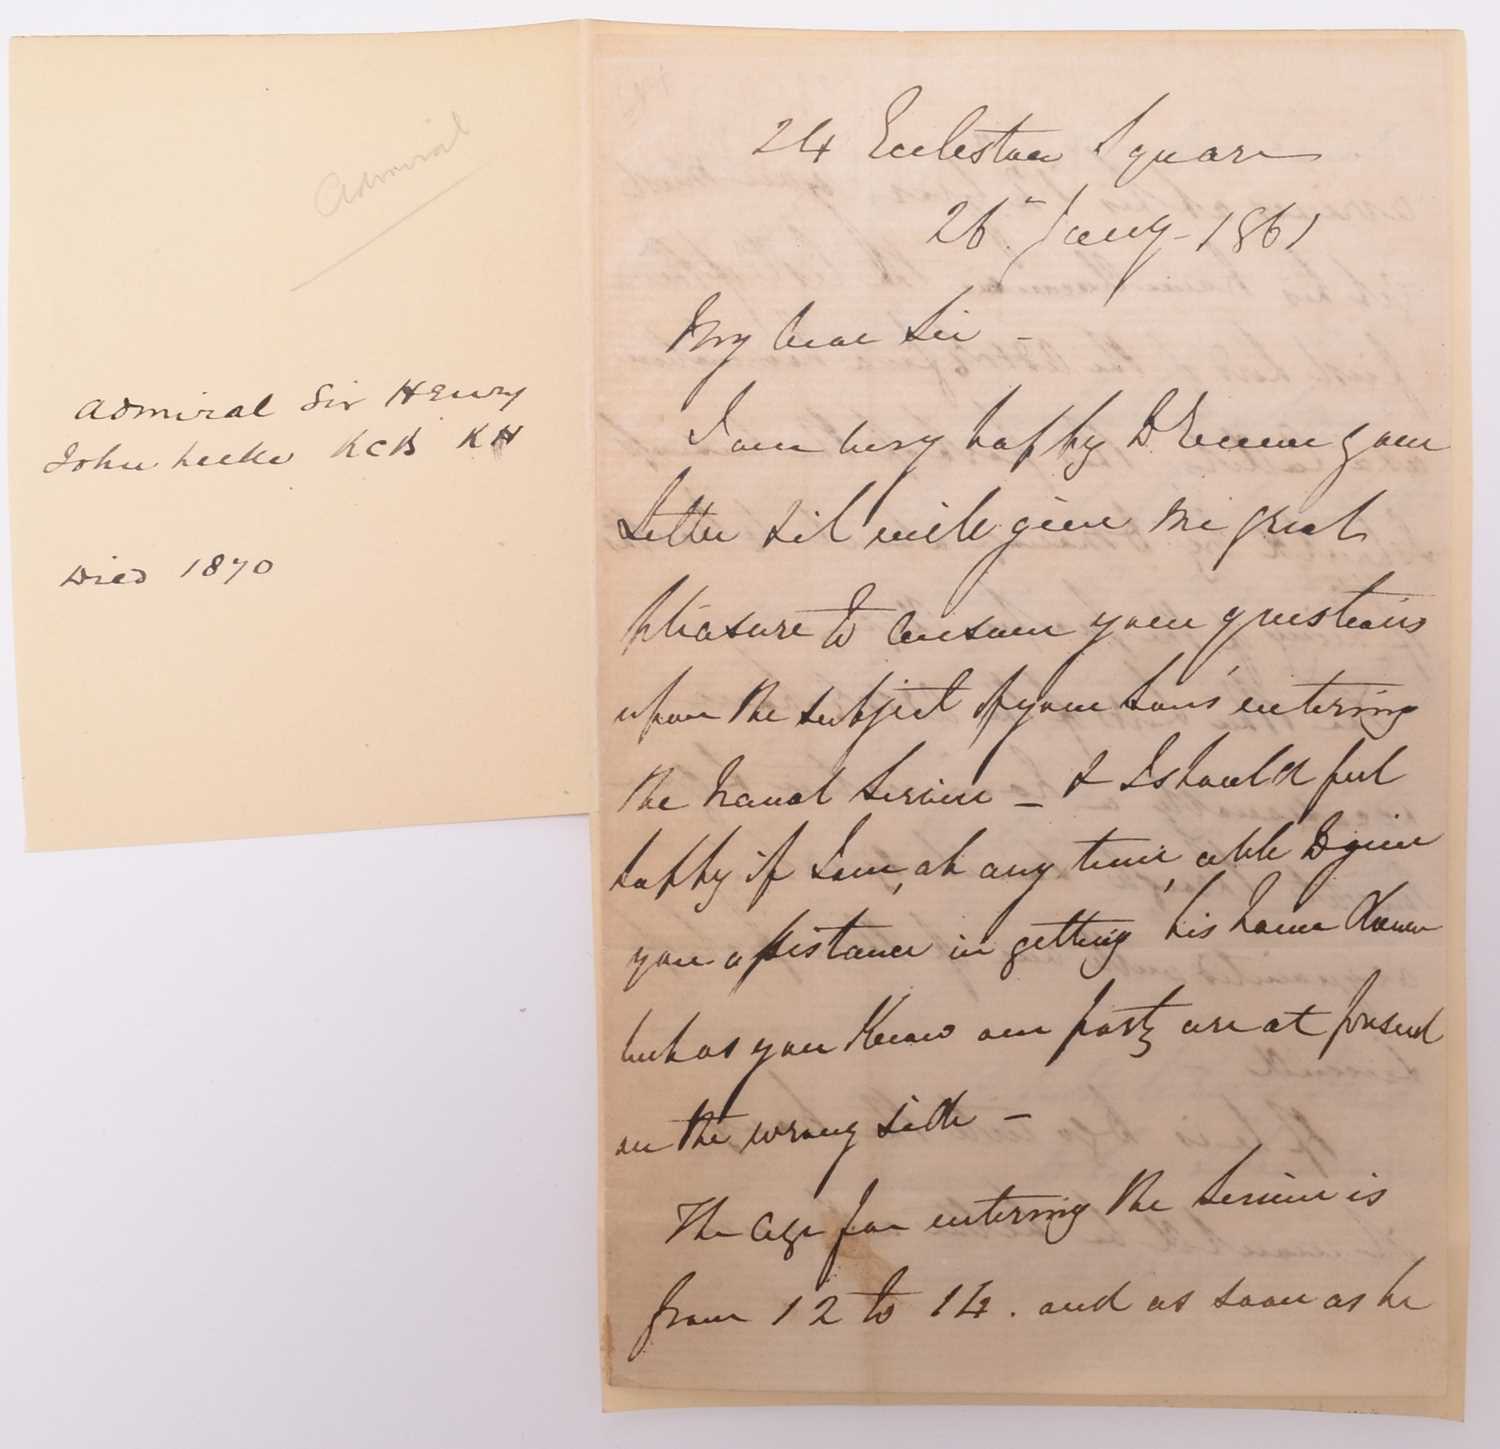 Admiral
Admiral Sir Henry
John Leeke KCB KH
Died 1870
24 Eccleston Square
26 Jany - 1861
My dear Sir -
I am very happy to receive your
Letter & it will give me great
pleasure to answer your questions
upon the subject of your Sons' entering
the Naval Service - & I should feel
happy if I am, at any time, able to give
you assistance in getting his name down
but as you Know our party are at present
on the wrong side -
The age for entering the Service is
from 12 to 14. and as soon as he